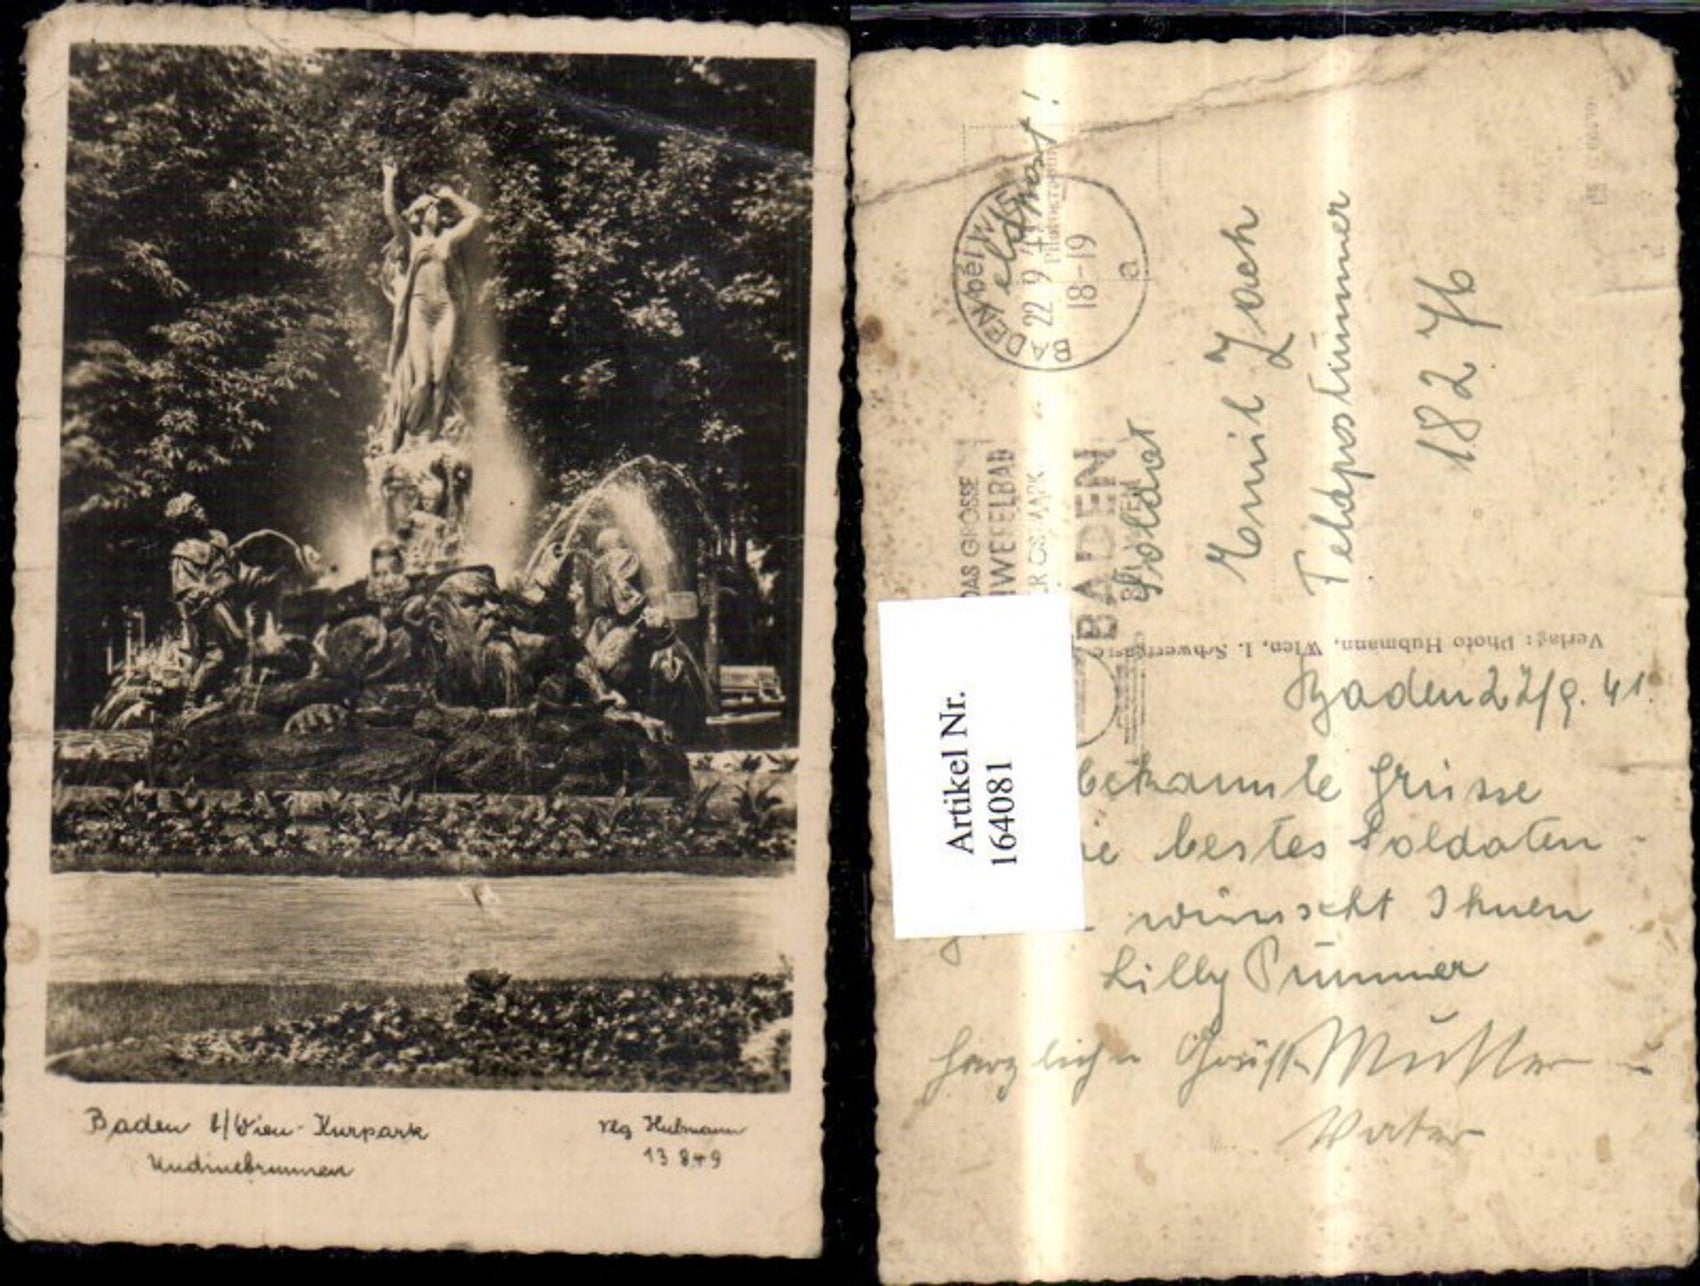 Baden b/Wien-Kurpark
Undinebrunnen
Vlg Hubmann
13849
Feldpost!
BADEN bei WIEN
22 9 41
18-19
a
DAS GROSSE
HWEFELBAD
R OSTMARK
BADEN
BEI WIEN
Soldat
Emil Zach
Feldpostnummer
18276
Verlag: Photo Hubmann, Wien, I. Schwertgasse
Baden 22/9. 41.
bekannte Grüsse
bestes Soldaten-
wünscht Ihnen
Lilly Pummer
Herzliche Grüsse Mutter
Vater
Artikel Nr.
164081